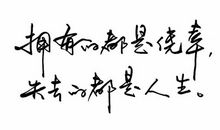 拥有的都是侥幸,
失去的都是人生。